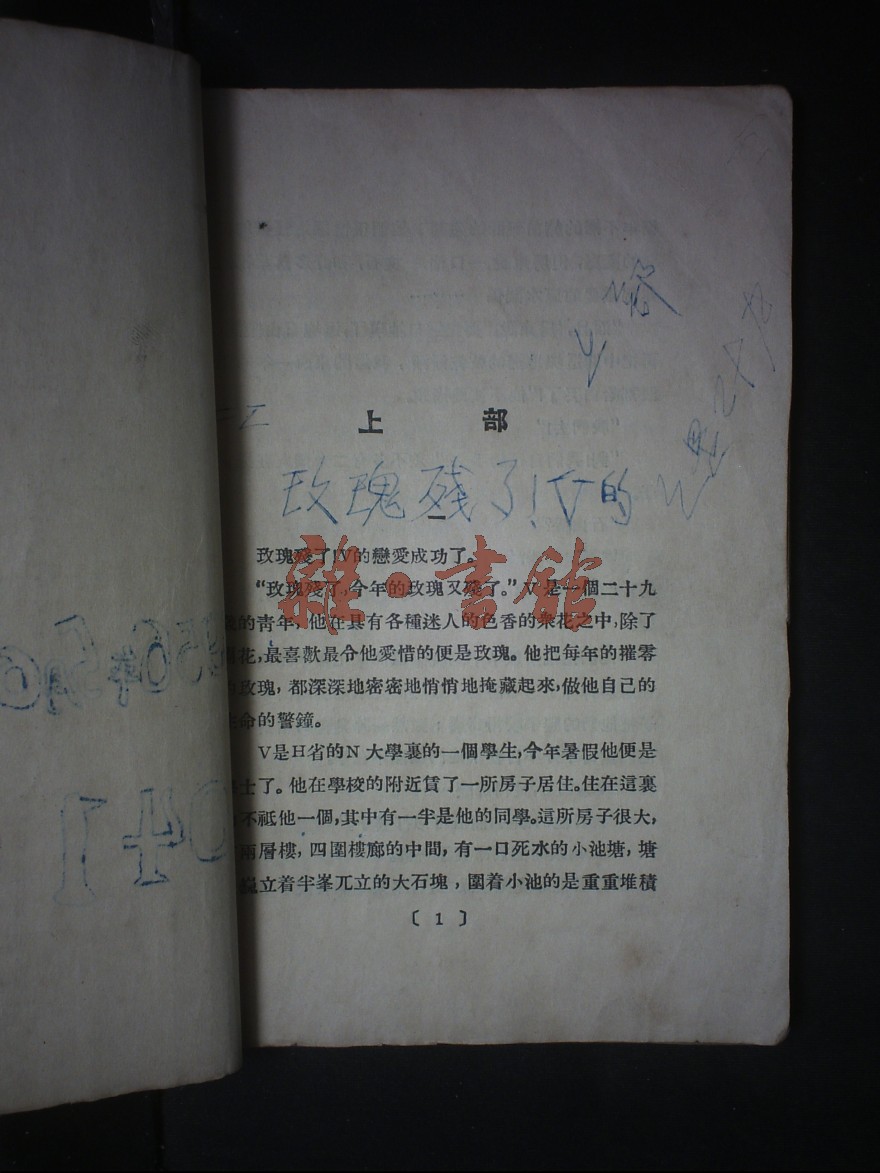 上 部
玫瑰殘了!V的
一
玫瑰殘了!V的戀愛成功了。
“玫瑰殘了,今年的玫瑰又殘了。”V是一個二十九
的靑年,他在具有各種迷人的色香的衆花之中,除了
花,最喜歡最令他愛惜的便是玫瑰。他把每年的摧零
玫瑰,都深深地密密地悄悄地掩藏起來,做他自己的
命的警鐘。
V是H省的N大學裏的一個學生,今年暑假他便是
士了。他在學校的附近賃了一所房子居住。住在這裏
不祇他一個,其中有一半是他的同學。這所房子很大,
兩層樓,四圍樓廊的中間,有一口死水的小池塘,塘
立着半峯兀立的大石塊,圍着小池的是重重堆積
〔 1 〕
雜·書館